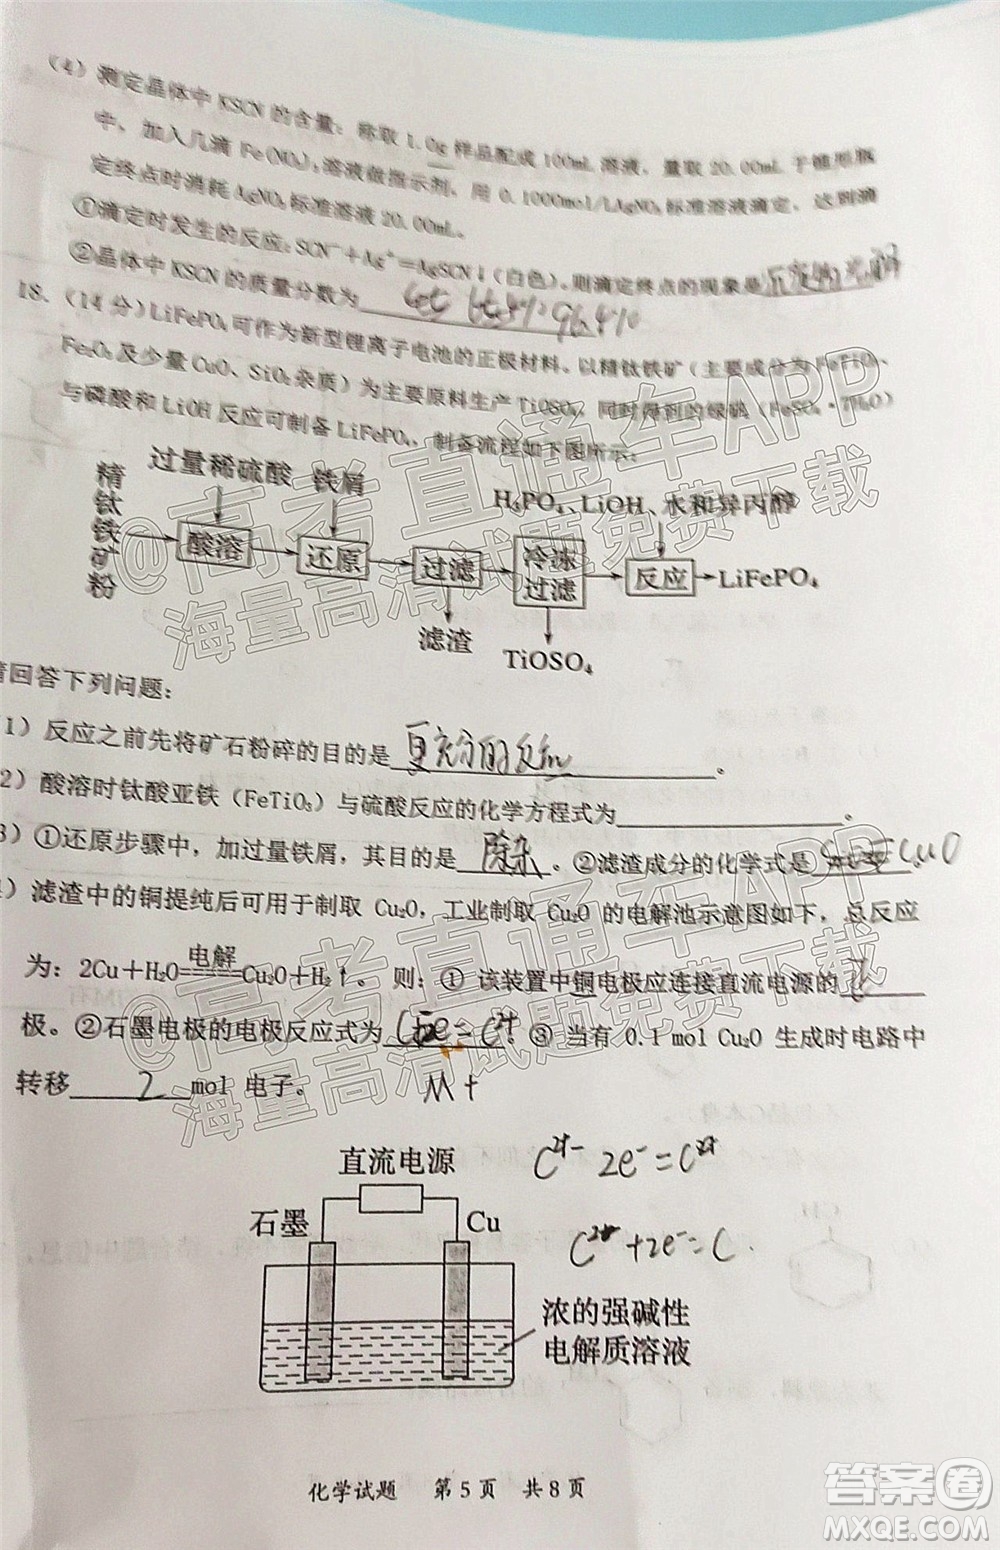 (4)测定晶体中 KSCN 的含量：称取 1.0g 样品配成 100mL 溶液，量取 20.00mL 于锥形瓶
中，加入几滴 Fe(NO₃)₃溶液做指示剂，用 0.1000mol/LAgNO₃标准溶液滴定，达到滴
定终点时消耗 AgNO₃标准溶液 20.00mL。
①滴定时发生的反应：SCN⁻+Ag⁺=AgSCN↓(白色)。则滴定终点的现象是
②晶体中 KSCN 的质量分数为 96.4%
18.（14分）LiFePO₄可作为新型锂离子电池的正极材料。以精钛铁矿（主要成分为FeTiO₃、
Fe₂O₃及少量 CuO、SiO₂杂质）为主要原料生产 TiOSO₄，同时得到的绿矾(FeSO₄·7H₂O)
与磷酸和 LiOH 反应可制备 LiFePO₄，制备流程如下图所示：
过量稀硫酸 铁屑
H₃PO₄、LiOH、水和异丙醇
精钛铁矿粉 酸溶 还原 过滤 冷冻过滤 反应 LiFePO₄
滤渣 TiOSO₄
请回答下列问题：
1）反应之前先将矿石粉碎的目的是 更充分的反应 。
2）酸溶时钛酸亚铁（FeTiO₃）与硫酸反应的化学方程式为 。
3）①还原步骤中，加过量铁屑，其目的是 除杂 。②滤渣成分的化学式是 CuO
）滤渣中的铜提纯后可用于制取 Cu₂O，工业制取 Cu₂O 的电解池示意图如下，总反应
为：2Cu+H₂O 电解 Cu₂O+H₂↑。 则：① 该装置中铜电极应连接直流电源的
极。②石墨电极的电极反应式为 。③ 当有 0.1 mol Cu₂O 生成时电路中
转移 2 mol 电子。
直流电源
石墨 Cu
C²⁺+2e⁻=C.
浓的强碱性
电解质溶液
化学试题 第5页 共8页
@高考直通车APP
海量高清试题免费下载
答案圈
MXQE.COM